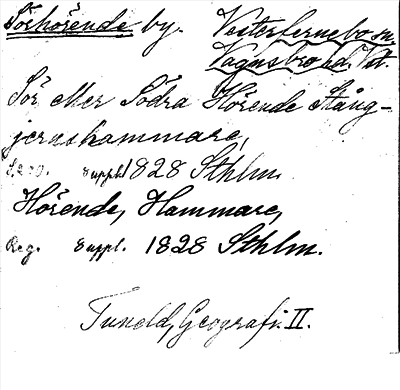 Sörhörende by. Vesterfernebo sn.
Vagnsbro hd. Vst.
Sör eller Södra Hörende Stång-
jernshammare,
Suppl. 1828 Sthlm.
Hörende, Hammare,
Reg. Suppl. 1828 Sthlm.
Tuneld, Geografi. II.